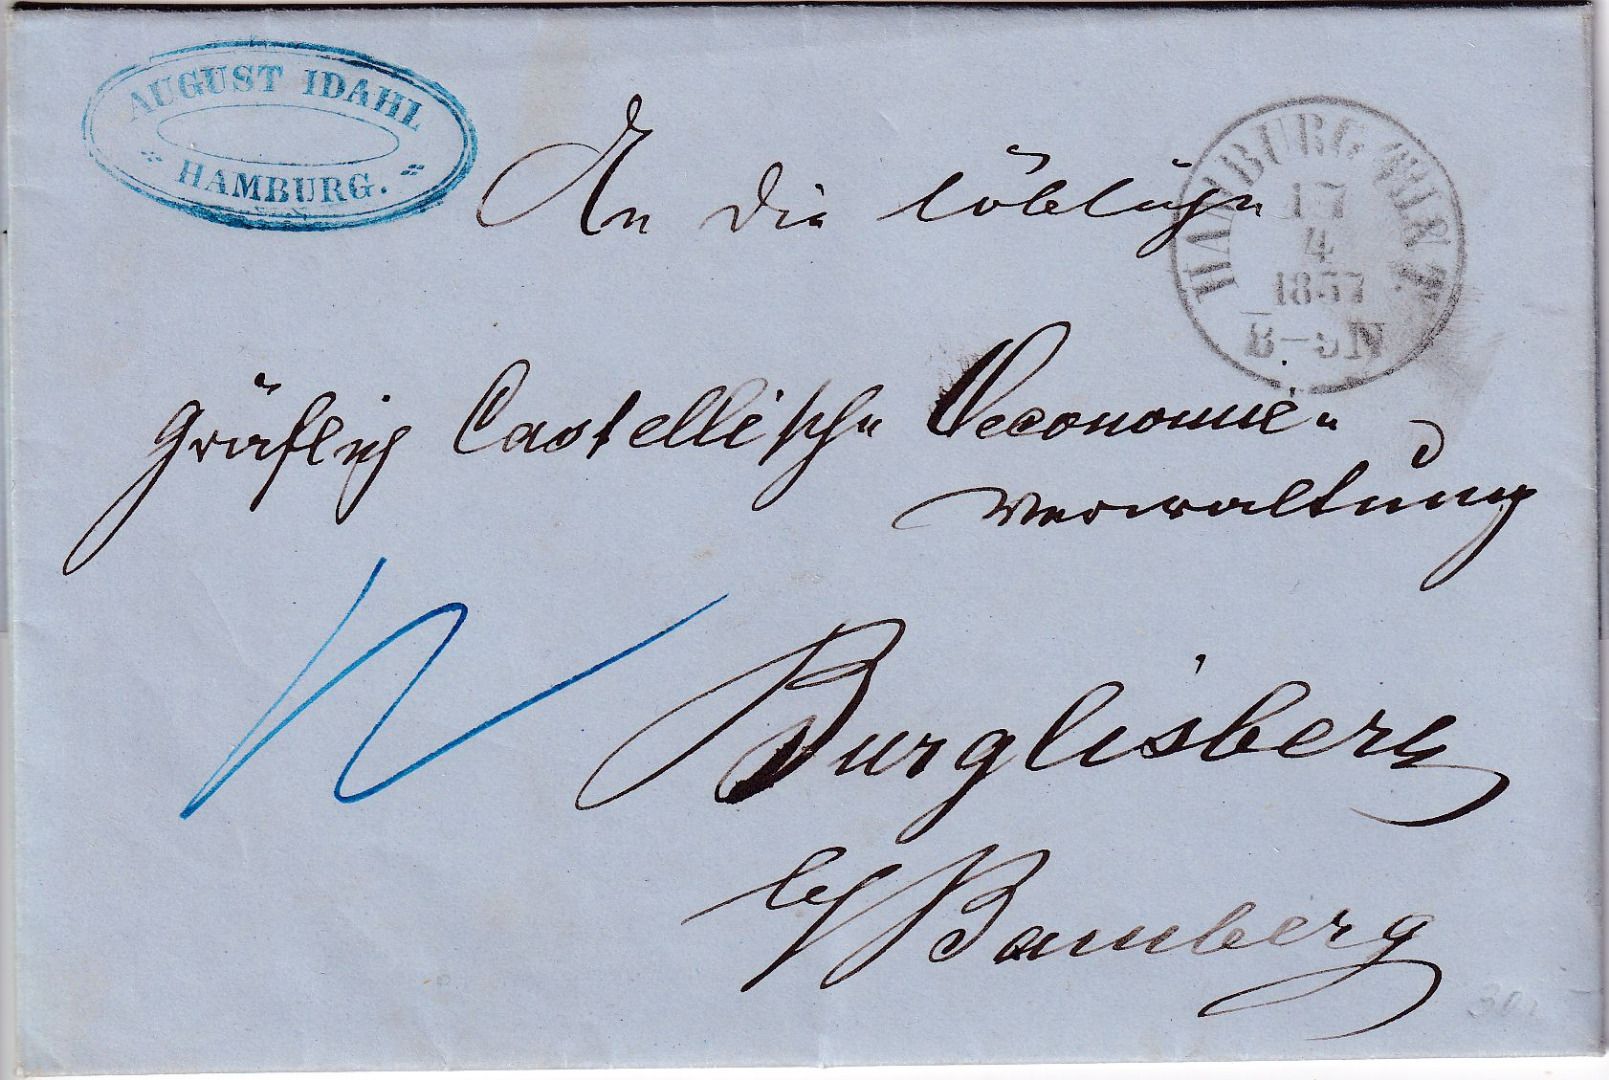 AUGUST IDAHL
HAMBURG.
HAMBURG
17
4
1857
An die löbliche
Gräflich Castellische Oeconomie-
Verwaltung
Burglisberg
b/Bamberg